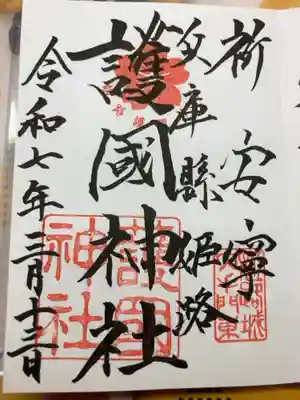 祈安寧
兵庫縣姫路
護國神社
令和七年三月十三日
護國
神社